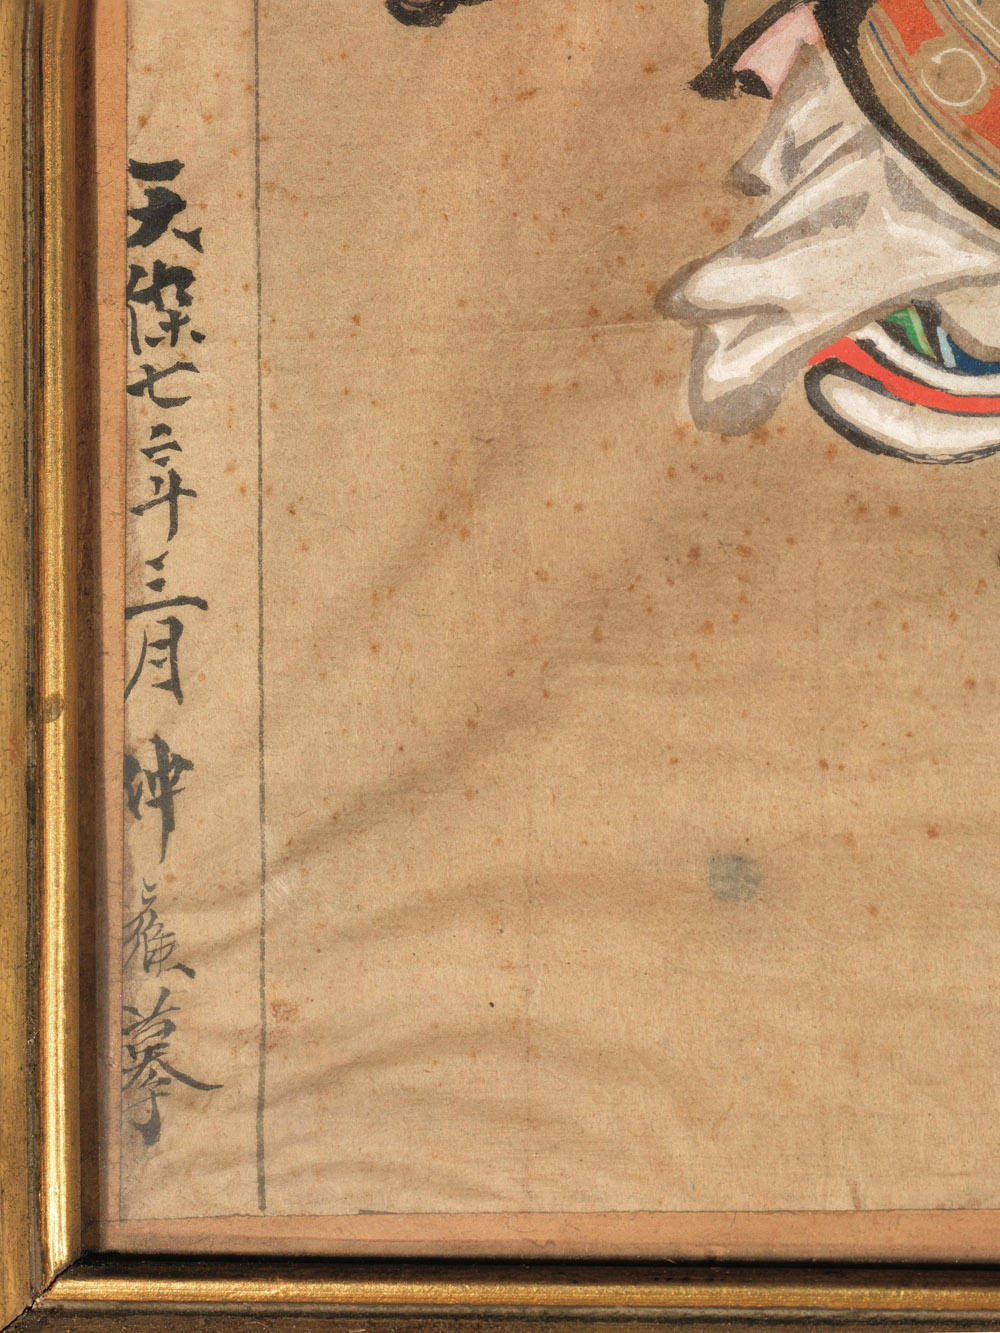 天保七年三月仲廣摹